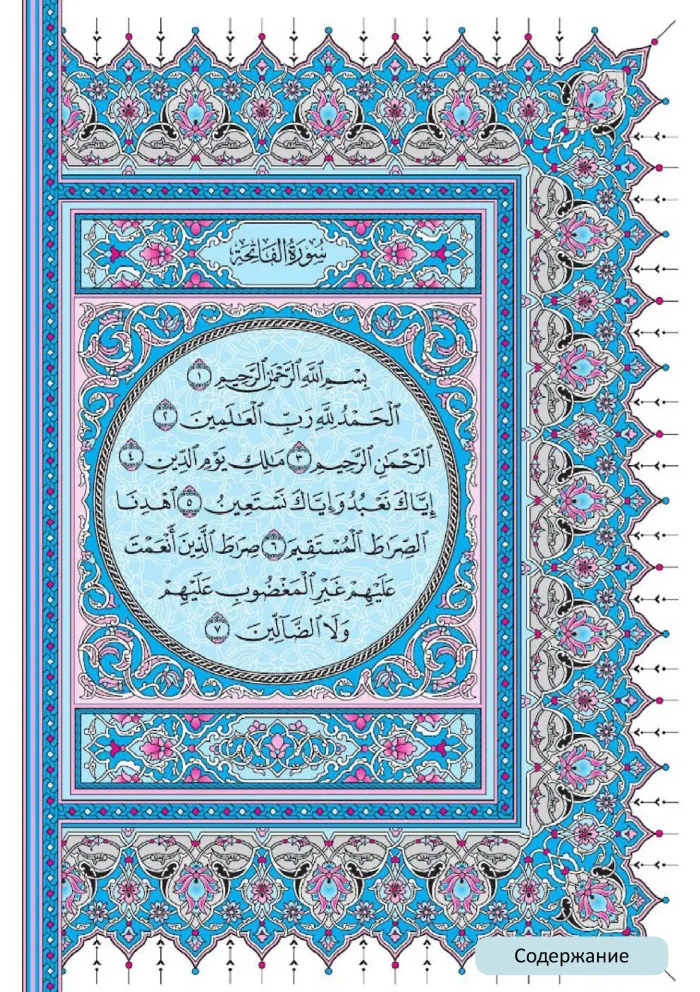 سُورَةُ الفَاتِحَةِ
بِسْمِ ٱللَّهِ ٱلرَّحْمَٰنِ ٱلرَّحِيمِ ١
ٱلْحَمْدُ لِلَّهِ رَبِّ ٱلْعَٰلَمِينَ ٢
ٱلرَّحْمَٰنِ ٱلرَّحِيمِ ٣ مَٰلِكِ يَوْمِ ٱلدِّينِ ٤
إِيَّاكَ نَعْبُدُ وَإِيَّاكَ نَسْتَعِينُ ٥ ٱهْدِنَا
ٱلصِّرَٰطَ ٱلْمُسْتَقِيمَ ٦ صِرَٰطَ ٱلَّذِينَ أَنْعَمْتَ
عَلَيْهِمْ غَيْرِ ٱلْمَغْضُوبِ عَلَيْهِمْ
وَلَا ٱلضَّآلِّينَ ٧
Содержание